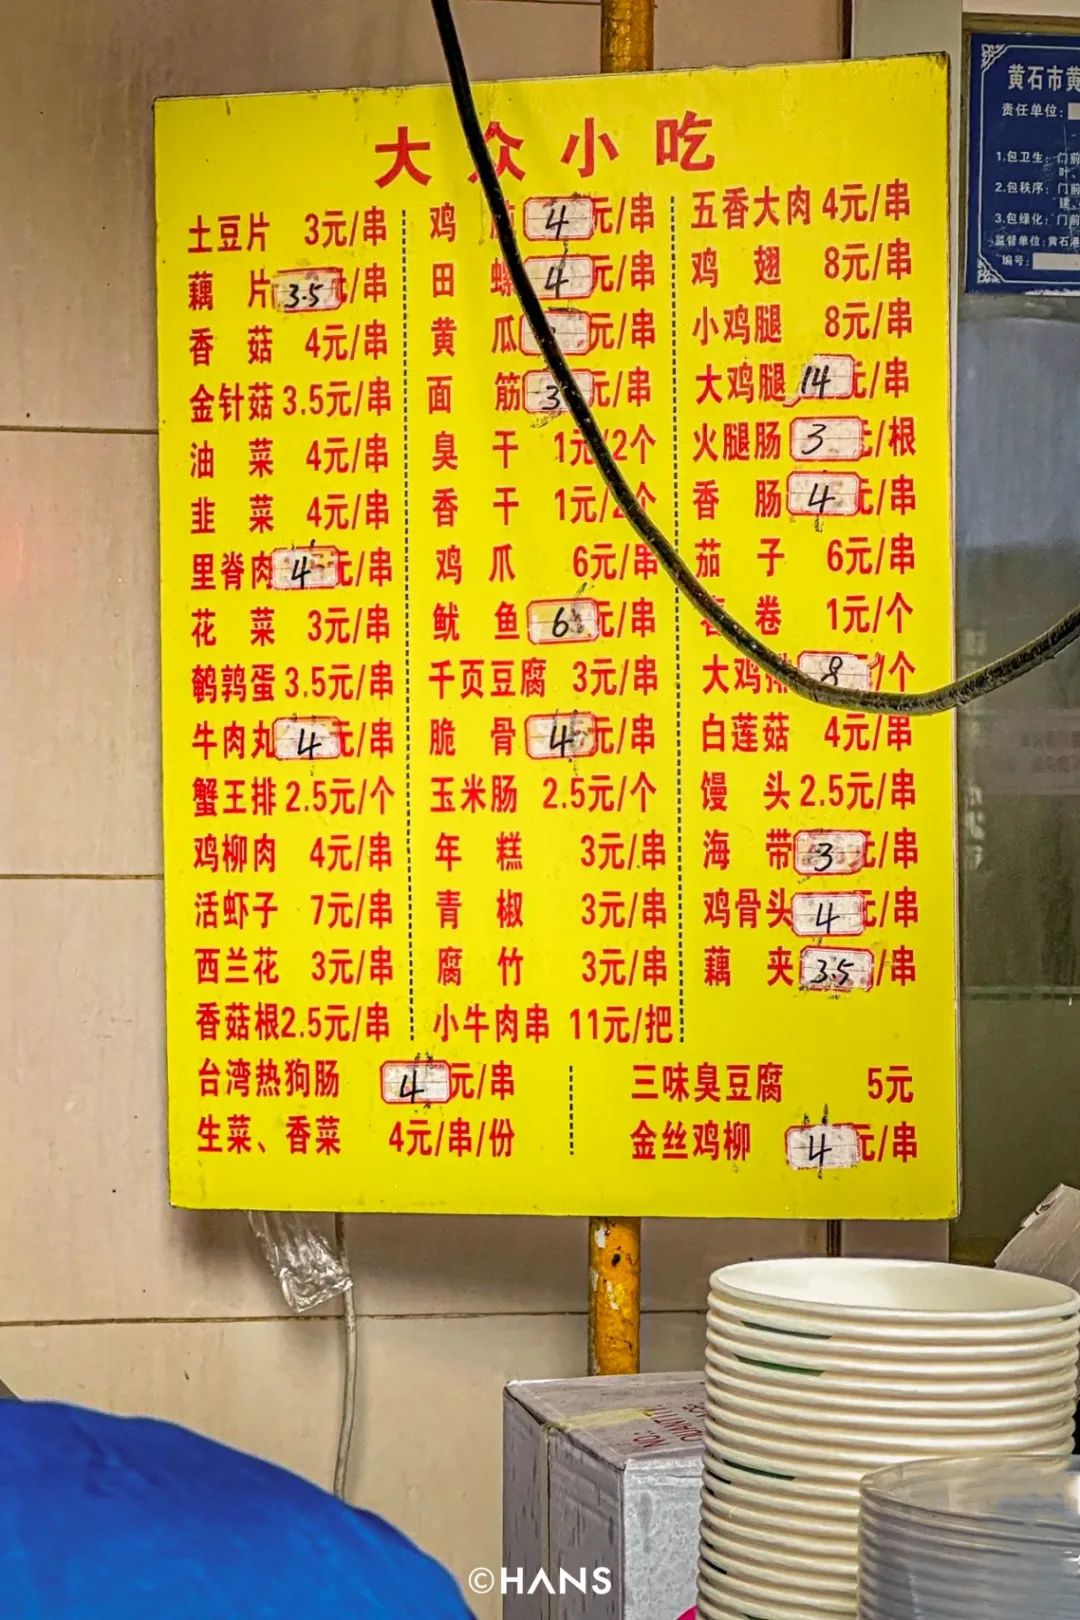 大众小吃
土豆片 3元/串
藕片 3.5元/串
香菇 4元/串
金针菇 3.5元/串
油菜 4元/串
韭菜 4元/串
里脊肉 4元/串
花菜 3元/串
鹌鹑蛋 3.5元/串
牛肉丸 4元/串
蟹王排 2.5元/个
鸡柳肉 4元/串
活虾子 7元/串
西兰花 3元/串
香菇根 2.5元/串
鸡 4元/串
田螺 4元/串
黄瓜 元/串
面筋 3元/串
臭干 1元/2个
香干 1元/2个
鸡爪 6元/串
鱿鱼 6元/串
千页豆腐 3元/串
脆骨 4元/串
玉米肠 2.5元/个
年糕 3元/串
青椒 3元/串
腐竹 3元/串
小牛肉串 11元/把
五香大肉 4元/串
鸡翅 8元/串
小鸡腿 8元/串
大鸡腿 14元/串
火腿肠 3元/根
香肠 4元/串
茄子 6元/串
卷 1元/个
大鸡排 8元/个
白莲菇 4元/串
馒头 2.5元/串
海带 3元/串
鸡骨头 4元/串
藕夹 3.5/串
台湾热狗肠 4元/串
生菜、香菜 4元/串/份
三味臭豆腐 5元
金丝鸡柳 4元/串
黄石市黄
责任单位:
1.包卫生: 门前
2.包秩序: 门前
3.包绿化: 门前
监督单位: 黄石港
编号:
©HANS